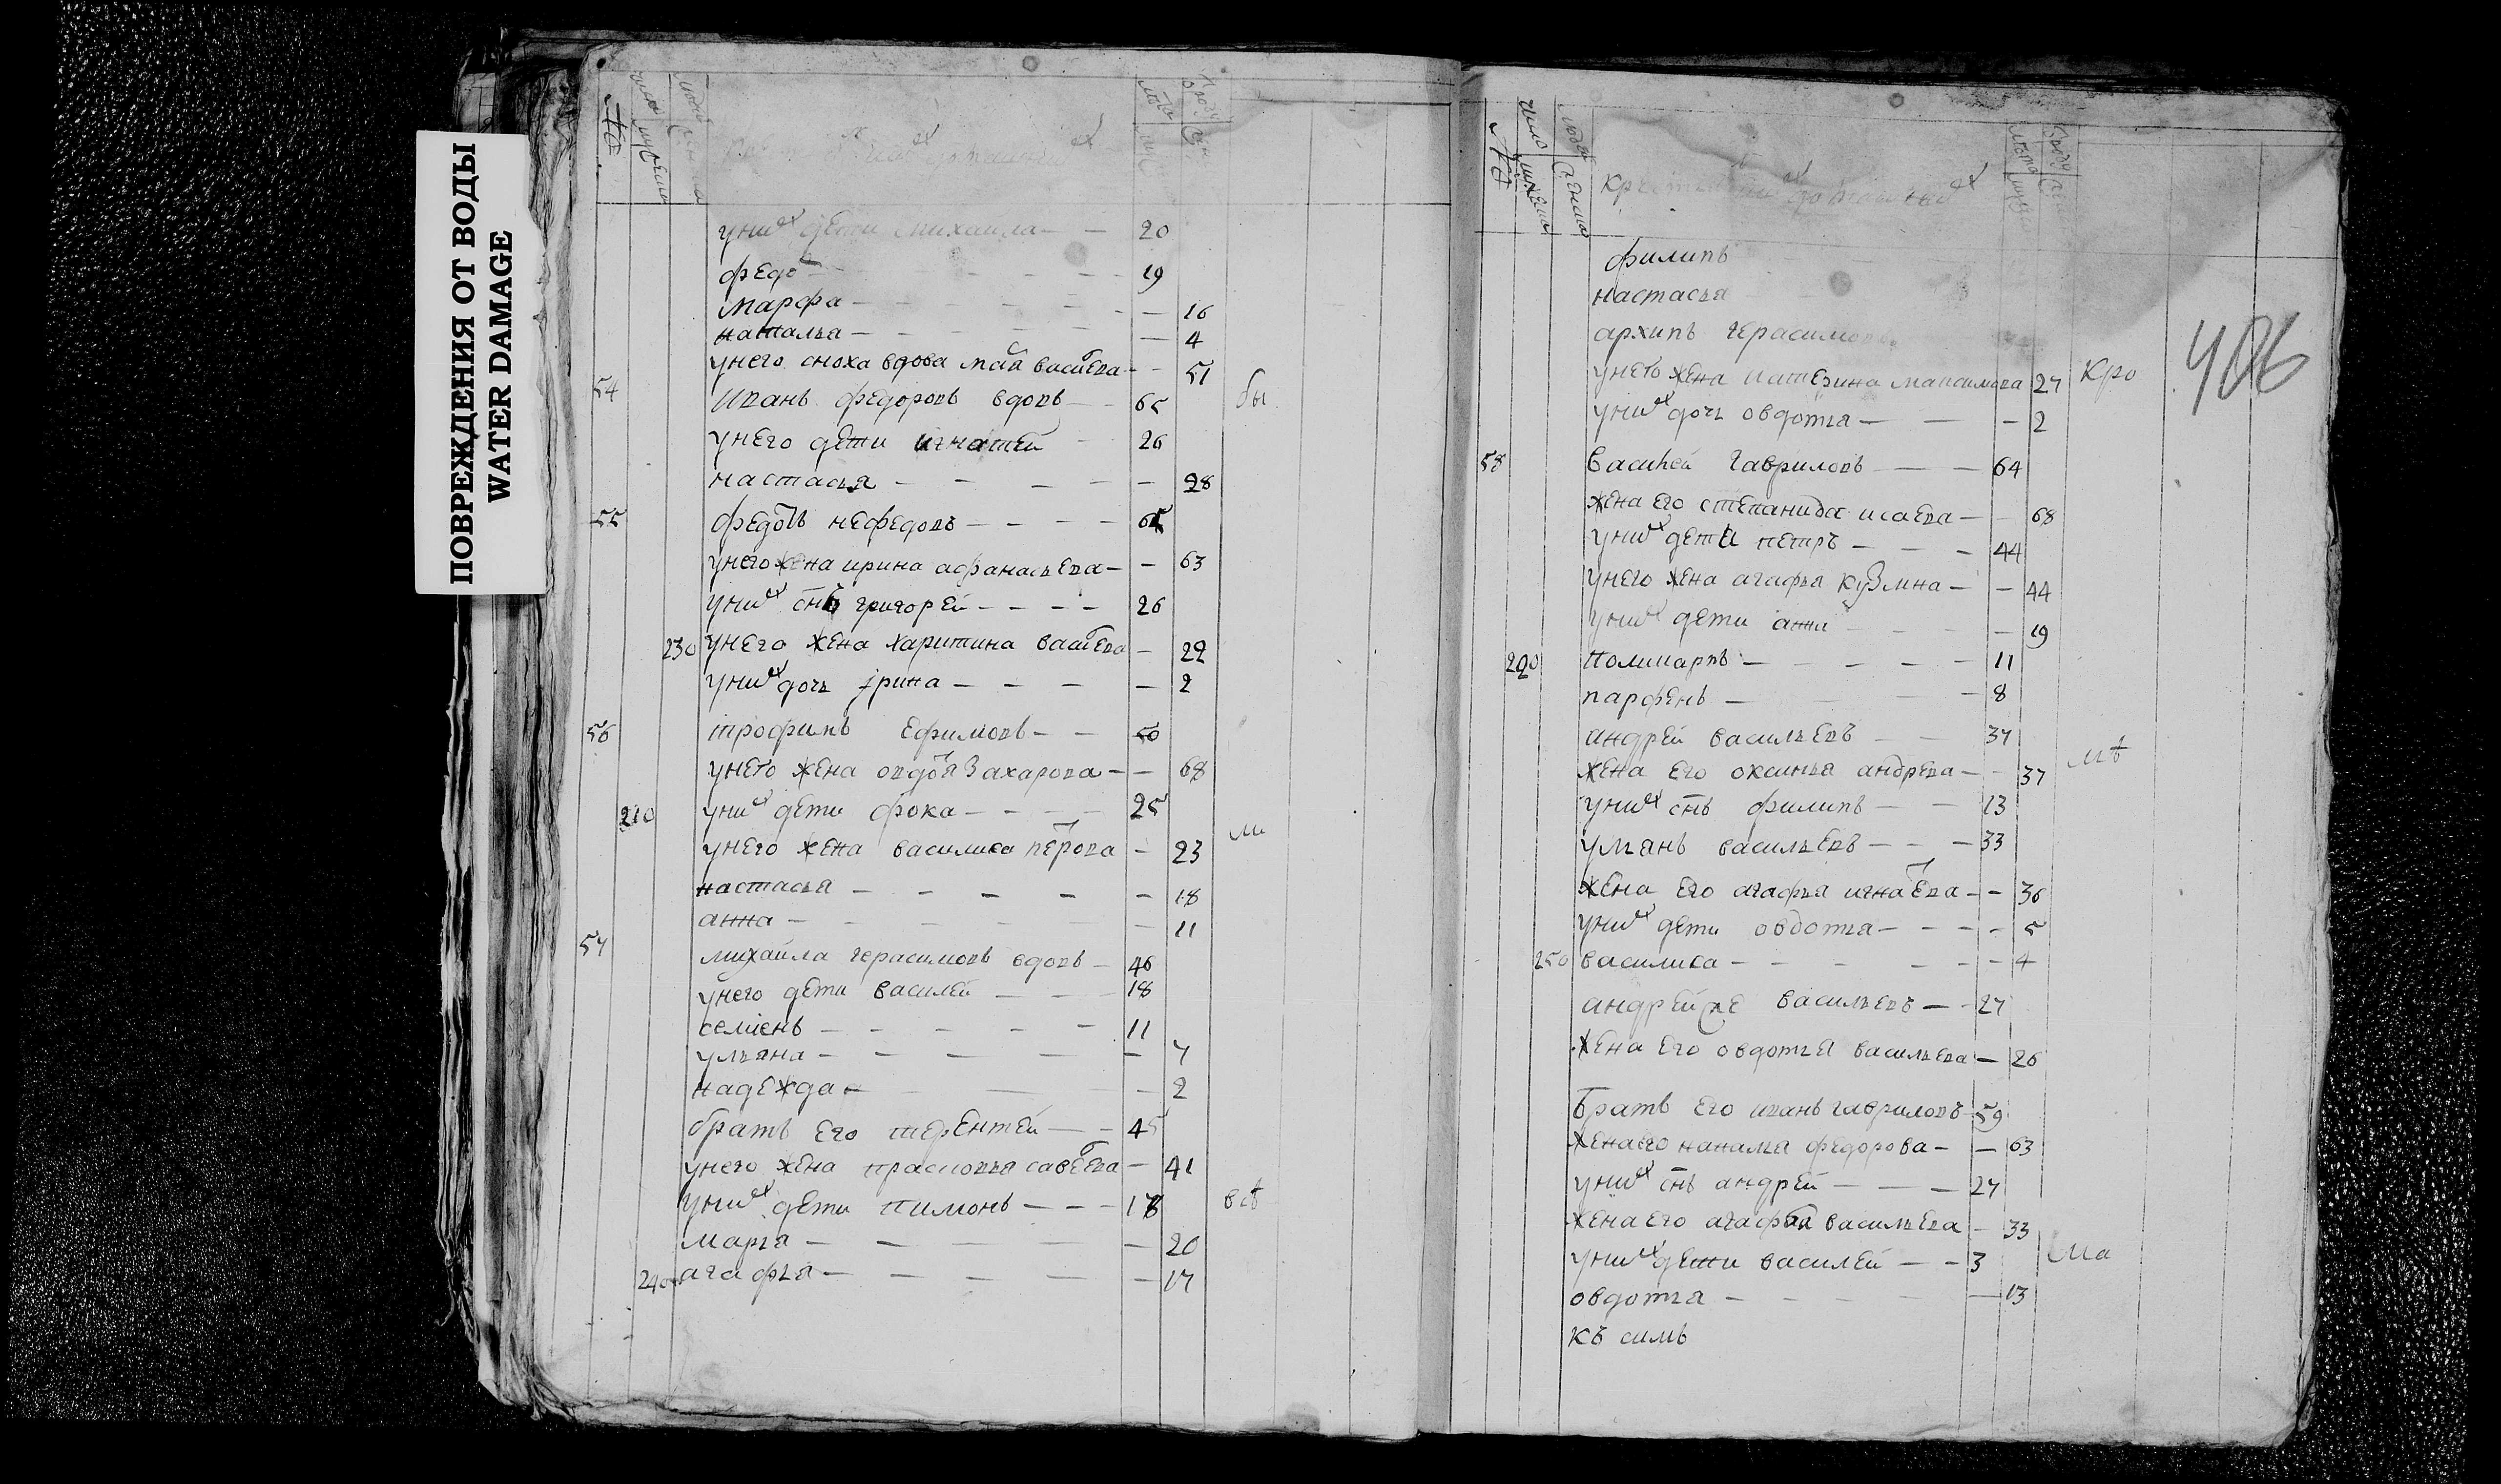 ПОВРЕЖДЕНИЯ ОТ ВОДЫ
WATER DAMAGE
№
у них дети михаила — — 20
федо — — 19
марфа — — 16
наталья — — 4
у него сноха вдова василева — 51
54 иванъ федоровъ вдовъ — 65 бы
у него дети игнатей — 26
настасья — — 28
55 федотъ нефедовъ — — 65
у него жена ирина афанасьева — — 63
у них снъ григорей — — 26
230 у него жена харитина василева — 22
у них дочь ірина — — 2
56 трофимъ ефимовъ — — 50
у него жена овдотя захарова — — 68
210 у них дети фока — — 25
у него жена василиса петрова — 23 ми
настасья — — 18
анна — — 11
57 михаила герасимовъ вдовъ — 46
у него дети василей — — 18
семіенъ — — 11
ульяна — — 7
надежда — — 2
братъ его терентей — — 45
у него жена прасковья савелева — 41
у них дети пимонъ — — 18 всѣ
марья — — 20
240 агафья — — 17
№
филипъ
настасья
архипъ герасимовъ
у него жена катерина максимова 27 кро
406
у них дочь овдотья — — 2
58 василей гавриловъ — — 64
жена его степанида исаева — — 68
у них дети петръ — — 44
у него жена агафья кузмина — — 44
у них дети анна — 19
220 поликарпъ — — 11
парфенъ — — 8
андрей васильевъ — — 37
жена его оксинья андрева — — 37 мѣ
у них снъ филипъ — — 13
ульянъ васильевъ — — 33
жена его агафья игнатева — — 36
у них дети овдотья — — 5
250 василиса — — 4
андрей васильевъ — — 27
жена его овдотья васильева — 26
братъ его иванъ гавриловъ 59
жена его наталья федорова — — 63
у них снъ андрей — — 27
жена его агафья васильева — 33
у них дети василей — — 3 ма
овдотья — — 13
къ симъ